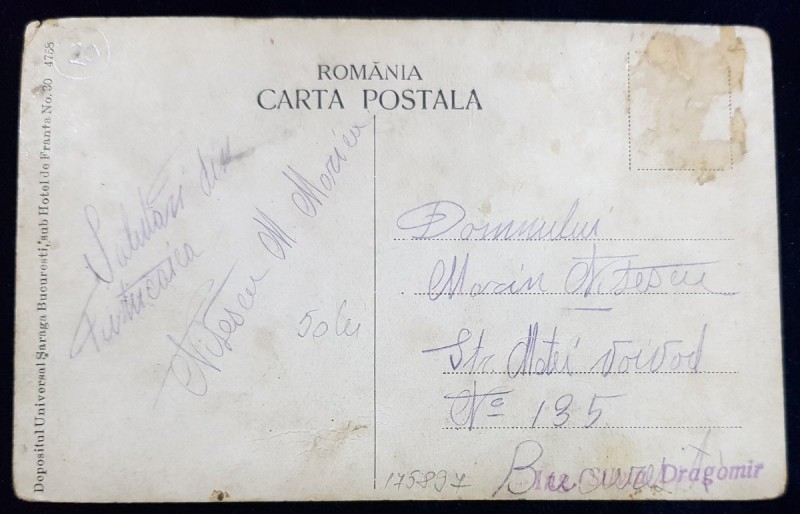 ROMÂNIA
CARTA POSTALA
Depositul Universal Șaraga Bucuresti, sub Hotel de Franta No. 30 4758
Salutări din
Turtucaia
Nițescu M. Marica
50 lei
Domnului
Marin Nițescu
Str. Matei Voivod
No 135
București
175897
Dragomir